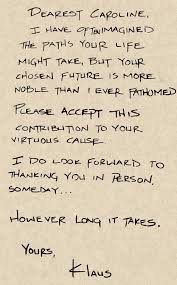 DEAREST CAROLINE,
I HAVE OFTEN IMAGINED
THE PATHS YOUR LIFE
MIGHT TAKE, BUT YOUR
CHOSEN FUTURE IS MORE
NOBLE THAN I EVER FATHOMED
PLEASE ACCEPT THIS
CONTRIBUTION TO YOUR
VIRTUOUS CAUSE
I DO LOOK FORWARD TO
THANKING YOU IN PERSON,
SOMEDAY...
HOWEVER LONG IT TAKES.
YOURS,
KLAUS